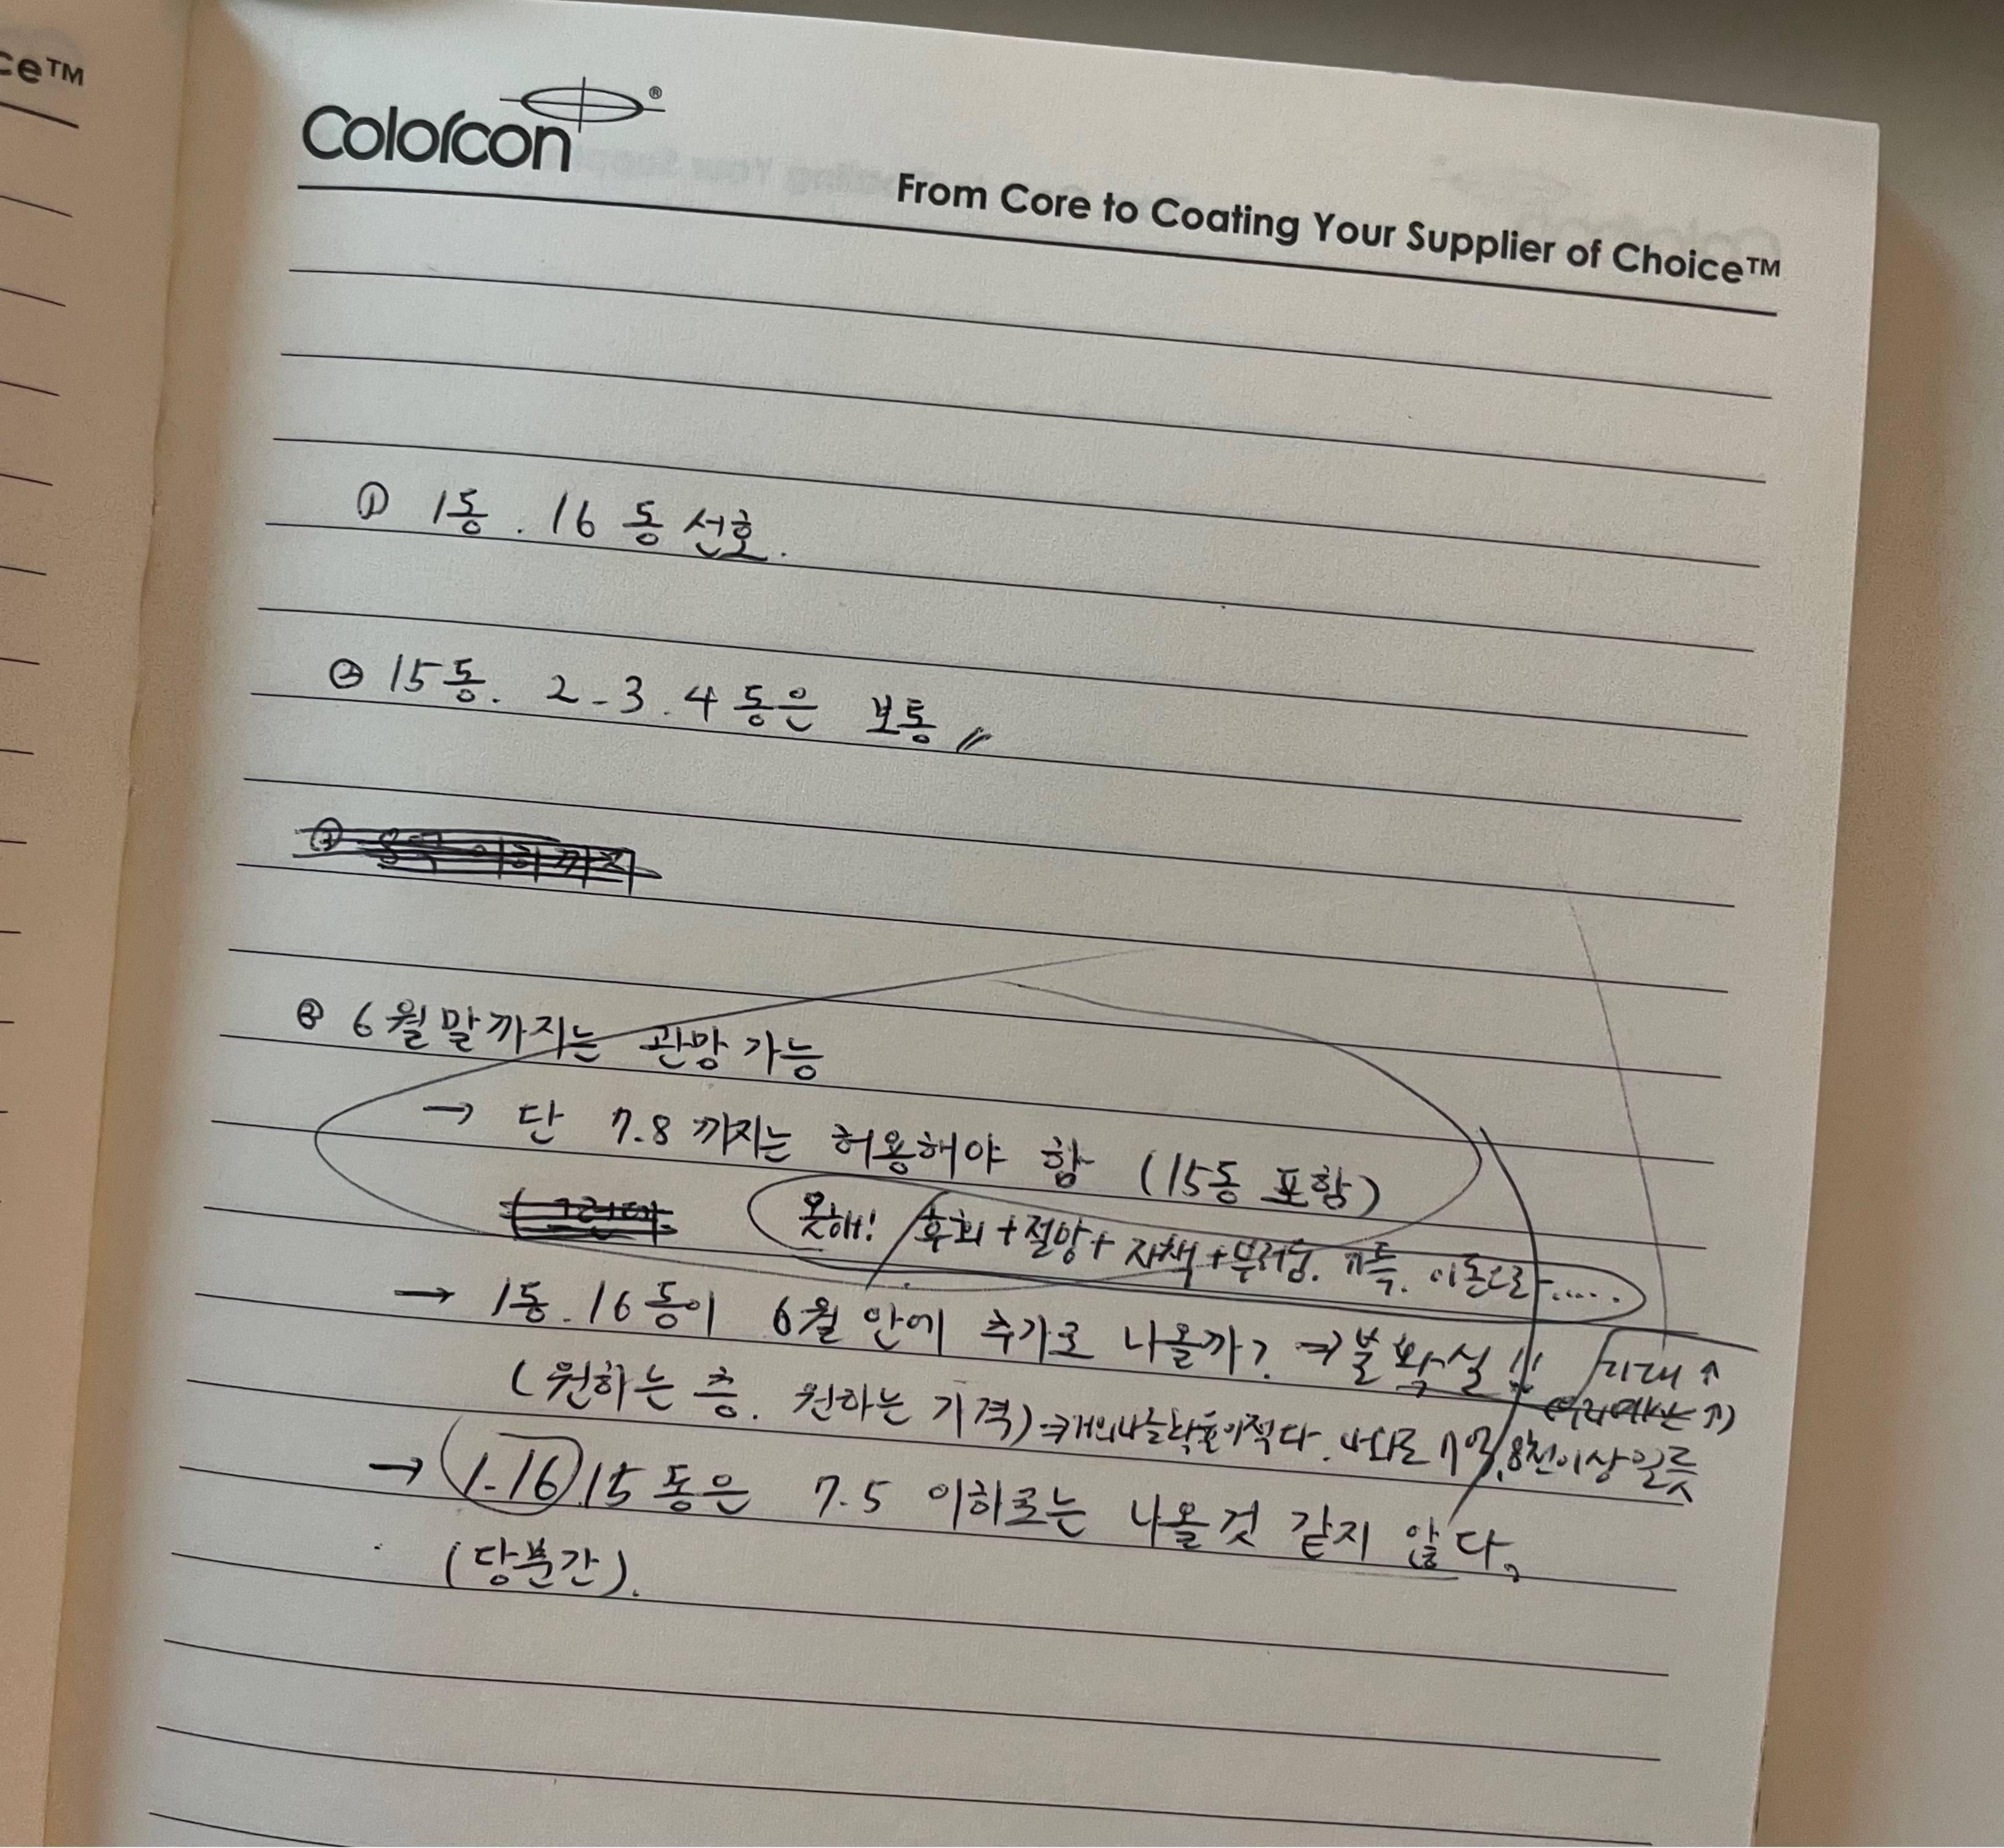 ce™
Colorcon®
From Core to Coating Your Supplier of Choice™
① 1동. 16동 선호.
② 15동. 2-3.4동은 보통〃
③ 6월말까지는 관망 가능
→ 단 7.8까지는 허용해야 함 (15동 포함)
못해! 후회+절망+자책+부러움.
→ 1동.16동이 6월 안에 추가로 나올까? ⇒ 불확실!!
기대↑
(원하는 층. 원하는 가격)
→ 1.16.15동은 7.5 이하로는 나올것 같지 않다.
(당분간).